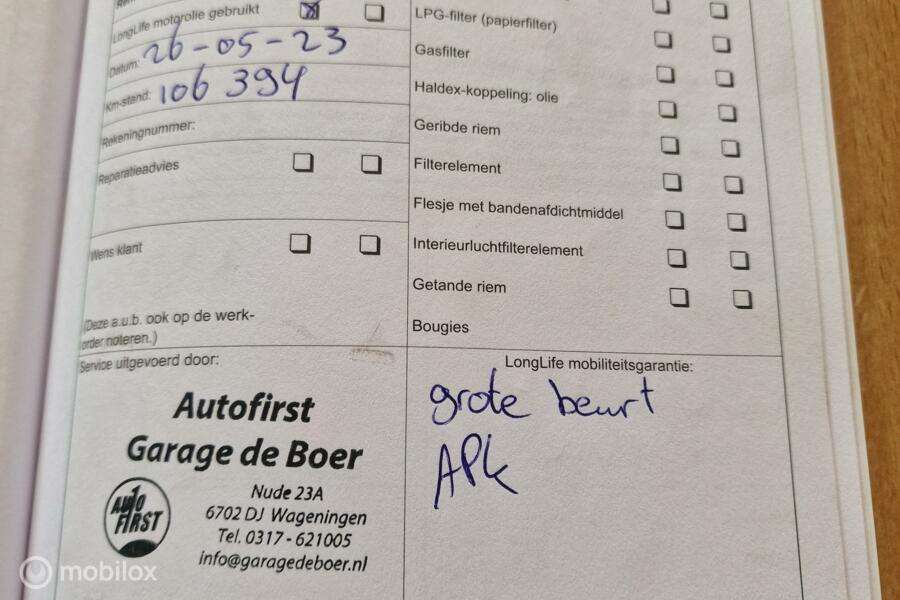 LongLife motorolie gebruikt
Datum: 26-05-23
Km-stand: 106 394
Rekeningnummer:
Reparatieadvies
Wens klant
(Deze a.u.b. ook op de werk-
order noteren.)
Service uitgevoerd door:
Autofirst
Garage de Boer
Nude 23A
6702 DJ Wageningen
Tel. 0317 - 621005
info@garagedeboer.nl
AUTO
FIRST
LPG-filter (papierfilter)
Gasfilter
Haldex-koppeling: olie
Geribde riem
Filterelement
Flesje met bandenafdichtmiddel
Interieurluchtfilterelement
Getande riem
Bougies
LongLife mobiliteitsgarantie:
grote beurt
APK
mobilox